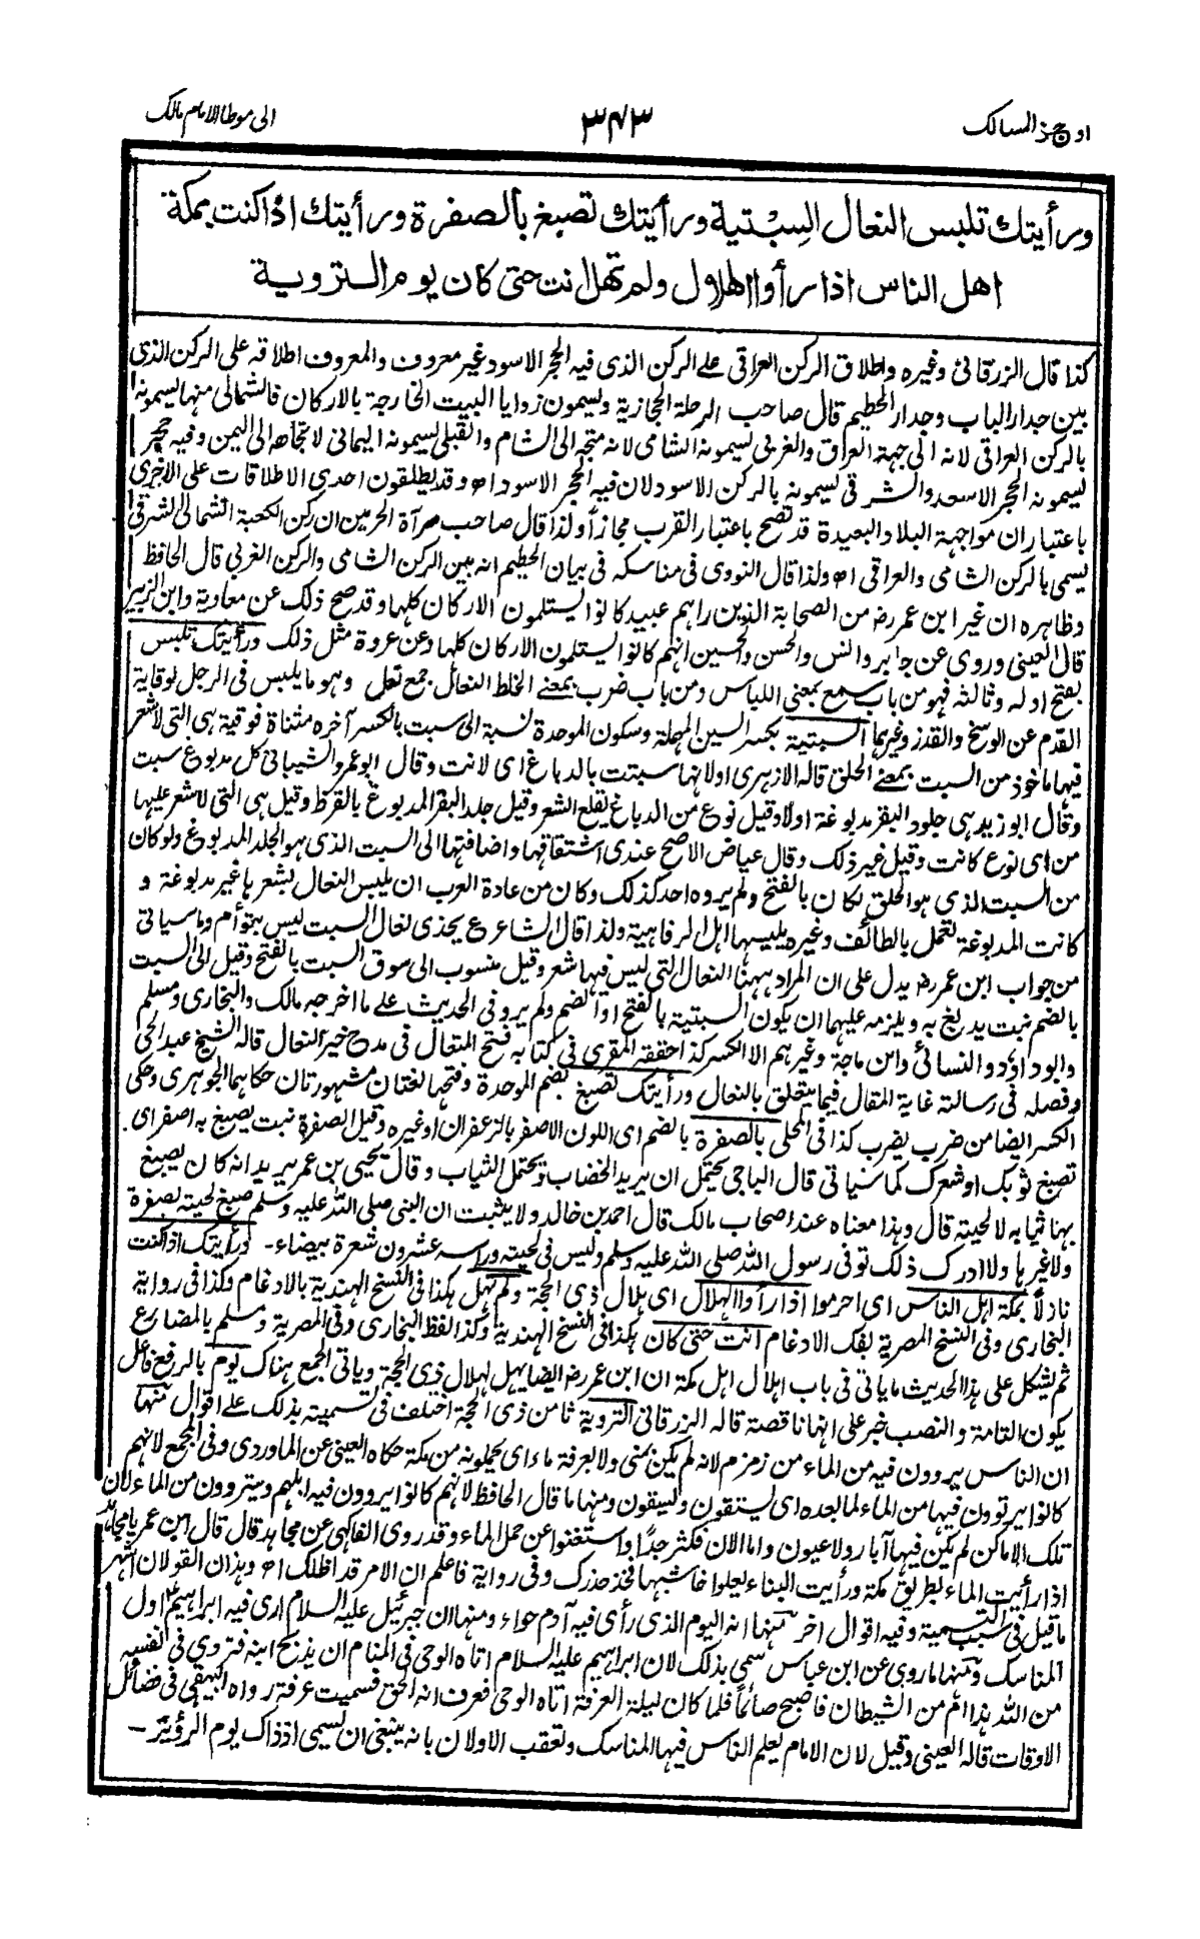 اوجز المسالك
٣٤٣
الى موطا الامام مالك
ورأيتك تلبس النعال السِبْتية ورأيتك تصبغ بالصفرة ورأيتك اذا كنت بمكة
اهل الناس اذا رأوا الهلال ولم تهل انت حتى كان يوم التروية
كذا قال الزرقانى وغيره واطلاق الركن العراقى على الركن الذى فيه الحجر الاسود غير معروف والمعروف اطلاقه على الركن الذى
بين جدار الباب وجدار الحطيم قال صاحب الرحلة الحجازية ويسمون زوايا البيت الخارجة بالاركان فالشمالى منها يسمونه
بالركن العراقى لانه الى جهة العراق والغربى يسمونه الشامى لانه متجه الى الشام والقبلى يسمونه اليمانى لاتجاهه الى اليمن وفيه حجر
يسمونه الحجر الاسعد والشرقى يسمونه بالركن الاسود لان فيه الحجر الاسود اه وقد يطلقون احدى الاطلاقات على الاخرى
باعتبار ان مواجهة البلاد البعيدة قد تصح باعتبار القرب مجازاً ولذا قال صاحب مرآة الحرمين ان ركن الكعبة الشمالى الشرقى
يسمى بالركن الشامى والعراقى اه ولذا قال النووى فى مناسكه فى بيان الحطيم انه بين الركن الشامى والركن الغربى قال الحافظ
وظاهره ان غير ابن عمر رض من الصحابة الذين راهم عبيد كانوا يستلمون الاركان كلها وقد صح ذلك عن معاوية وابن الزبير
قال العينى وروى عن جابر وانس والحسن والحسين انهم كانوا يستلمون الاركان كلها وعن عروة مثل ذلك ورأيتك تلبس
بفتح اوله وثالثه فهو من باب سمع بمعنى اللباس ومن باب ضرب بمعنى الخلط النعال جمع نعل وهو ما يلبس فى الرجل لوقاية
القدم عن الوسخ والقذر وغيرهما السبتية بكسر السين المهملة وسكون الموحدة نسبة الى سبت بالكسر آخره مثناة فوقية هى التى لا شعر
فيها ماخوذ من السبت بمعنى الحلق قاله الازهرى او لانها سبتت بالدباغ اى لانت وقال ابو عمرو الشيبانى كل مدبوغ سبت
وقال ابو زيد هى جلود البقر مدبوغة اولا وقيل نوع من الدباغ يقلع الشعر وقيل جلد البقر المدبوغ بالقرظ وقيل هى التى لا شعر عليها
من اى نوع كانت وقيل غير ذلك وقال عياض الاصح عندى اشتقاقها واضافتها الى السبت الذى هو الجلد المدبوغ ولو كان
من السبت الذى هو الحلق لكان بالفتح ولم يروه احد كذلك وكان من عادة العرب ان يلبس النعال بشعرها غير مدبوغة و
كانت المدبوغة تعمل بالطائف وغيره يلبسها اهل الرفاهية ولذا قال الشاعر ع يحذى نعال السبت ليس بتوأم وما سياتى
من جواب ابن عمر رض يدل على ان المراد ههنا النعال التى ليس فيها شعر وقيل منسوب الى سوق السبت بالفتح وقيل الى السبت
بالضم نبت يدبغ به ويلزمه عليهما ان يكون السبتية بالفتح او الضم ولم يرو فى الحديث على ما اخرجه مالك والبخارى ومسلم
وابو داؤد والنسائى وابن ماجة وغيرهم الا الكسر كذا حققه المقرى فى كتابه فتح المتعال فى مدح خير النعال قاله الشيخ عبد الحى
وفصله فى رسالته غاية المقال فيما يتعلق بالنعال ورأيتك تصبغ بضم الموحدة وفتحها لغتان مشهورتان حكاهما الجوهرى وحكى
الكسر ايضا من ضرب يضرب كذا فى المحلى بالصفرة بالضم اى اللون الاصفر بالزعفران او غيره وقيل الصفرة نبت يصبغ به اصفر اى
تصبغ ثوبك او شعرك كما سياتى قال الباجى يحتمل ان يريد الخضاب ويحتمل الثياب وقال يحيى بن عمر يريد انه كان يصبغ
بها ثيابه لا لحيته قال وهذا معناه عند اصحاب مالك قال احمد بن خالد ولا يثبت ان النبى صلى الله عليه وسلم صبغ لحيته بصفرة
ولا غيرها ولا ادرك ذلك توفى رسول الله صلى الله عليه وسلم وليس فى لحيته وراسه عشرون شعرة بيضاء- ورأيتك اذا كنت
نازلاً بمكة اهل الناس اى احرموا اذا رأوا الهلال اى هلال ذى الحجة ولم تهل هكذا فى النسخ الهندية بالادغام وكذا فى رواية
البخارى وفى النسخ المصرية بفك الادغام انت حتى كان هكذا فى النسخ الهندية وكذا لفظ البخارى وفى المصرية ومسلم بالمضارع
ثم يشكل على هذا الحديث ما ياتى فى باب اهلال اهل مكة ان ابن عمر رض ايضا يهل لهلال ذى الحجة وياتى الجمع هناك يوم بالرفع فاعل
يكون التامة والنصب خبر على انها ناقصة قاله الزرقانى التروية ثامن ذى الحجة اختلف فى تسميته بذلك على اقوال منها
ان الناس يروون فيه من الماء من زمزم لانه لم يكن بمنى ولا بعرفة ماء اى يحملونه من مكة حكاه العينى عن الماوردى وفى المجمع لانهم
كانوا يرتوون فيها من الماء لما بعده اى يستقون ويسقون ومنها ما قال الحافظ لانهم كانوا يروون فيه ابلهم ويتروون من الماء لان
تلك الاماكن لم يكن فيها آبار ولا عيون واما الان فكثر جداً واستغنوا عن حمل الماء وقد روى الفاكهى عن مجاهد قال قال ابن عمر يا مجاهد
اذا رأيت الماء بطريق مكة ورأيت البناء يعلو اخاشبها فخذ حذرك وفى رواية فاعلم ان الامر قد اظلك اه وهذان القولان اشهر
ما قيل فى سبب التسمية وفيه اقوال اخر منها انه اليوم الذى رأى فيه آدم حواء ومنها ان جبرئيل عليه السلام ارى فيه ابراهيم اول
المناسك ومنها ما روى عن ابن عباس سمى بذلك لان ابراهيم عليه السلام اتاه الوحى فى المنام ان يذبح ابنه فتروى فى نفسه
من الله هذا ام من الشيطان فاصبح صائماً فلما كان ليلة العرفة اتاه الوحى فعرف انه الحق فسميت عرفة رواه البيهقى فى فضائل
الاوقات قاله العينى وقيل لان الامام يعلم الناس فيها المناسك وتعقب الاولان بانه ينبغى ان يسمى اذ ذاك يوم الرؤية-